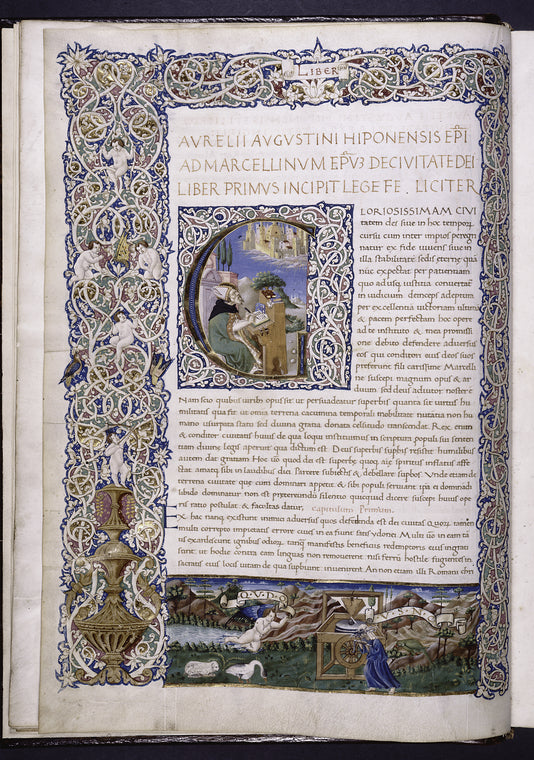 LIBER
AVRELII AVGVSTINI HIPONENSIS EPI
AD MARCELLINVM EPVS DECIVITATEDEI
LIBER PRIMVS INCIPIT LEGE FELICITER
GLORIOSISSIMAM CIVI
tatem dei siue in hoc tempor
cursu cum inter impios peregri
natur ex fide uiuens siue in
illa stabilitate sedis eternę quā
nūc expectat per patientiam
quo ad usq iustitia conuertat
in iudicium deinceps adeptura
per excellentiā uictoriam ultimā
& pacem perfectam hoc opere
ad te instituto & mea promissi
one debito defendere aduersus
eos qui conditori eius deos suos
preferunt fili carissime Marcelli
ne suscepi magnum opus & ar
duum sed deus adiutor noster ē
Nam scio quibus uiribus opus sit ut persuadeatur superbis quanta sit uirtus hu
militatis qua fit ut omia terrena cacumina temporali mobilitate nutātia non hu
mano usurpata fastu sed diuina gratia donata celsitudo transcendat. Rex enim
& conditor ciuitatis huius de qua loqui instituimus in scriptura populi sui senten
tiam diuine legis aperuit qua dictum est. Deus superbis resistit humilibus
autem dat gratiam Hoc uō quod dei est superbę quoq aīe spiritus inflatus affe
ctat amatq sibi in laudibus dici Parcere subiectis & debellare supbos Unde etiam de
terrena ciuitate que cum dominari appetit & si populi seruiant ipsa ei dominādi
libido dominatur non est pretereundū silentio quicquid dicere suscepti huius ope
ris ratio postulat & facultas datur, capitulum Primum.
EX hac nanq existunt inimici aduersus quos defendenda est dei ciuitas Quorū tamen
multi correpto impietatis errore ciues in ea fiunt satis ydonei Multi uō in eam tā
tis exardescunt ignibus odiorū tanq manifestis beneficiis redemptoris eius ingrati
sunt ut hodie contra eam linguas non mouerent nisi ferrū hostile fugientes in
sacratis eius locis uitam de qua supbiunt inuenirent An non etiam illi Romani chri